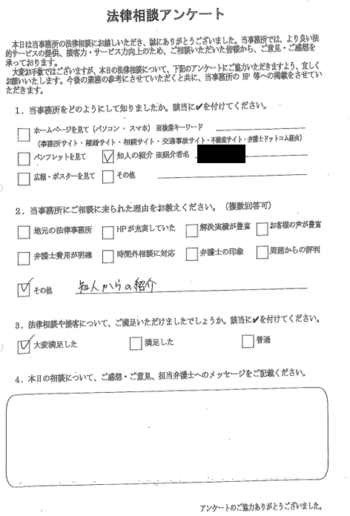 法律相談アンケート
本日は当事務所の法律相談にお越しいただき、誠にありがとうございました。当事務所では、より良い法
的サービスの提供、接客力・サービス力向上のため、ご相談いただいた皆様から、ご意見・ご感想を
承っております。
大変お手数ではございますが、本日の法律相談について、下記のアンケートにご協力いただきますよう、宜しく
お願いいたします。今後の業務の参考にさせていただくと共に、当事務所の HP 等への掲載をさせていた
だきます。
1．当事務所をどのようにして知りましたか。該当に✔を付けてください。
ホームページを見て（パソコン ・ スマホ）※検索キーワード
（事務所サイト・離婚サイト・相続サイト・交通事故サイト・不動産サイト・弁護士ドットコム経由）
パンフレットを見て ✓ 知人の紹介 ※紹介者名
広報・ポスターを見て その他
2．当事務所にご相談に来られた理由をお教えください。（複数回答可）
地元の法律事務所 HPが充実していた 解決実績が豊富 お客様の声が豊富
弁護士費用が明確 時間外相談に対応 弁護士の印象 周囲からの評判
✓ その他 知人からの紹介
3．法律相談や接客について、ご満足いただけましたでしょうか。該当に✔を付けてください。
✓ 大変満足した 満足した 普通
4．本日の相談について、ご感想・ご意見、担当弁護士へのメッセージをご記載ください。
アンケートのご協力ありがとうございました。